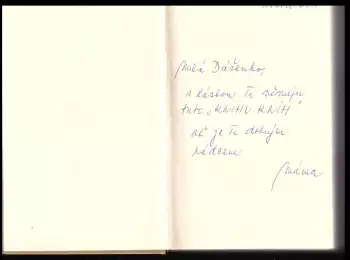 Milá Dášenko,
s láskou Ti věnuji
tuto „KNIHU KNIH"
ať je Ti dobrým
rádcem
Máma